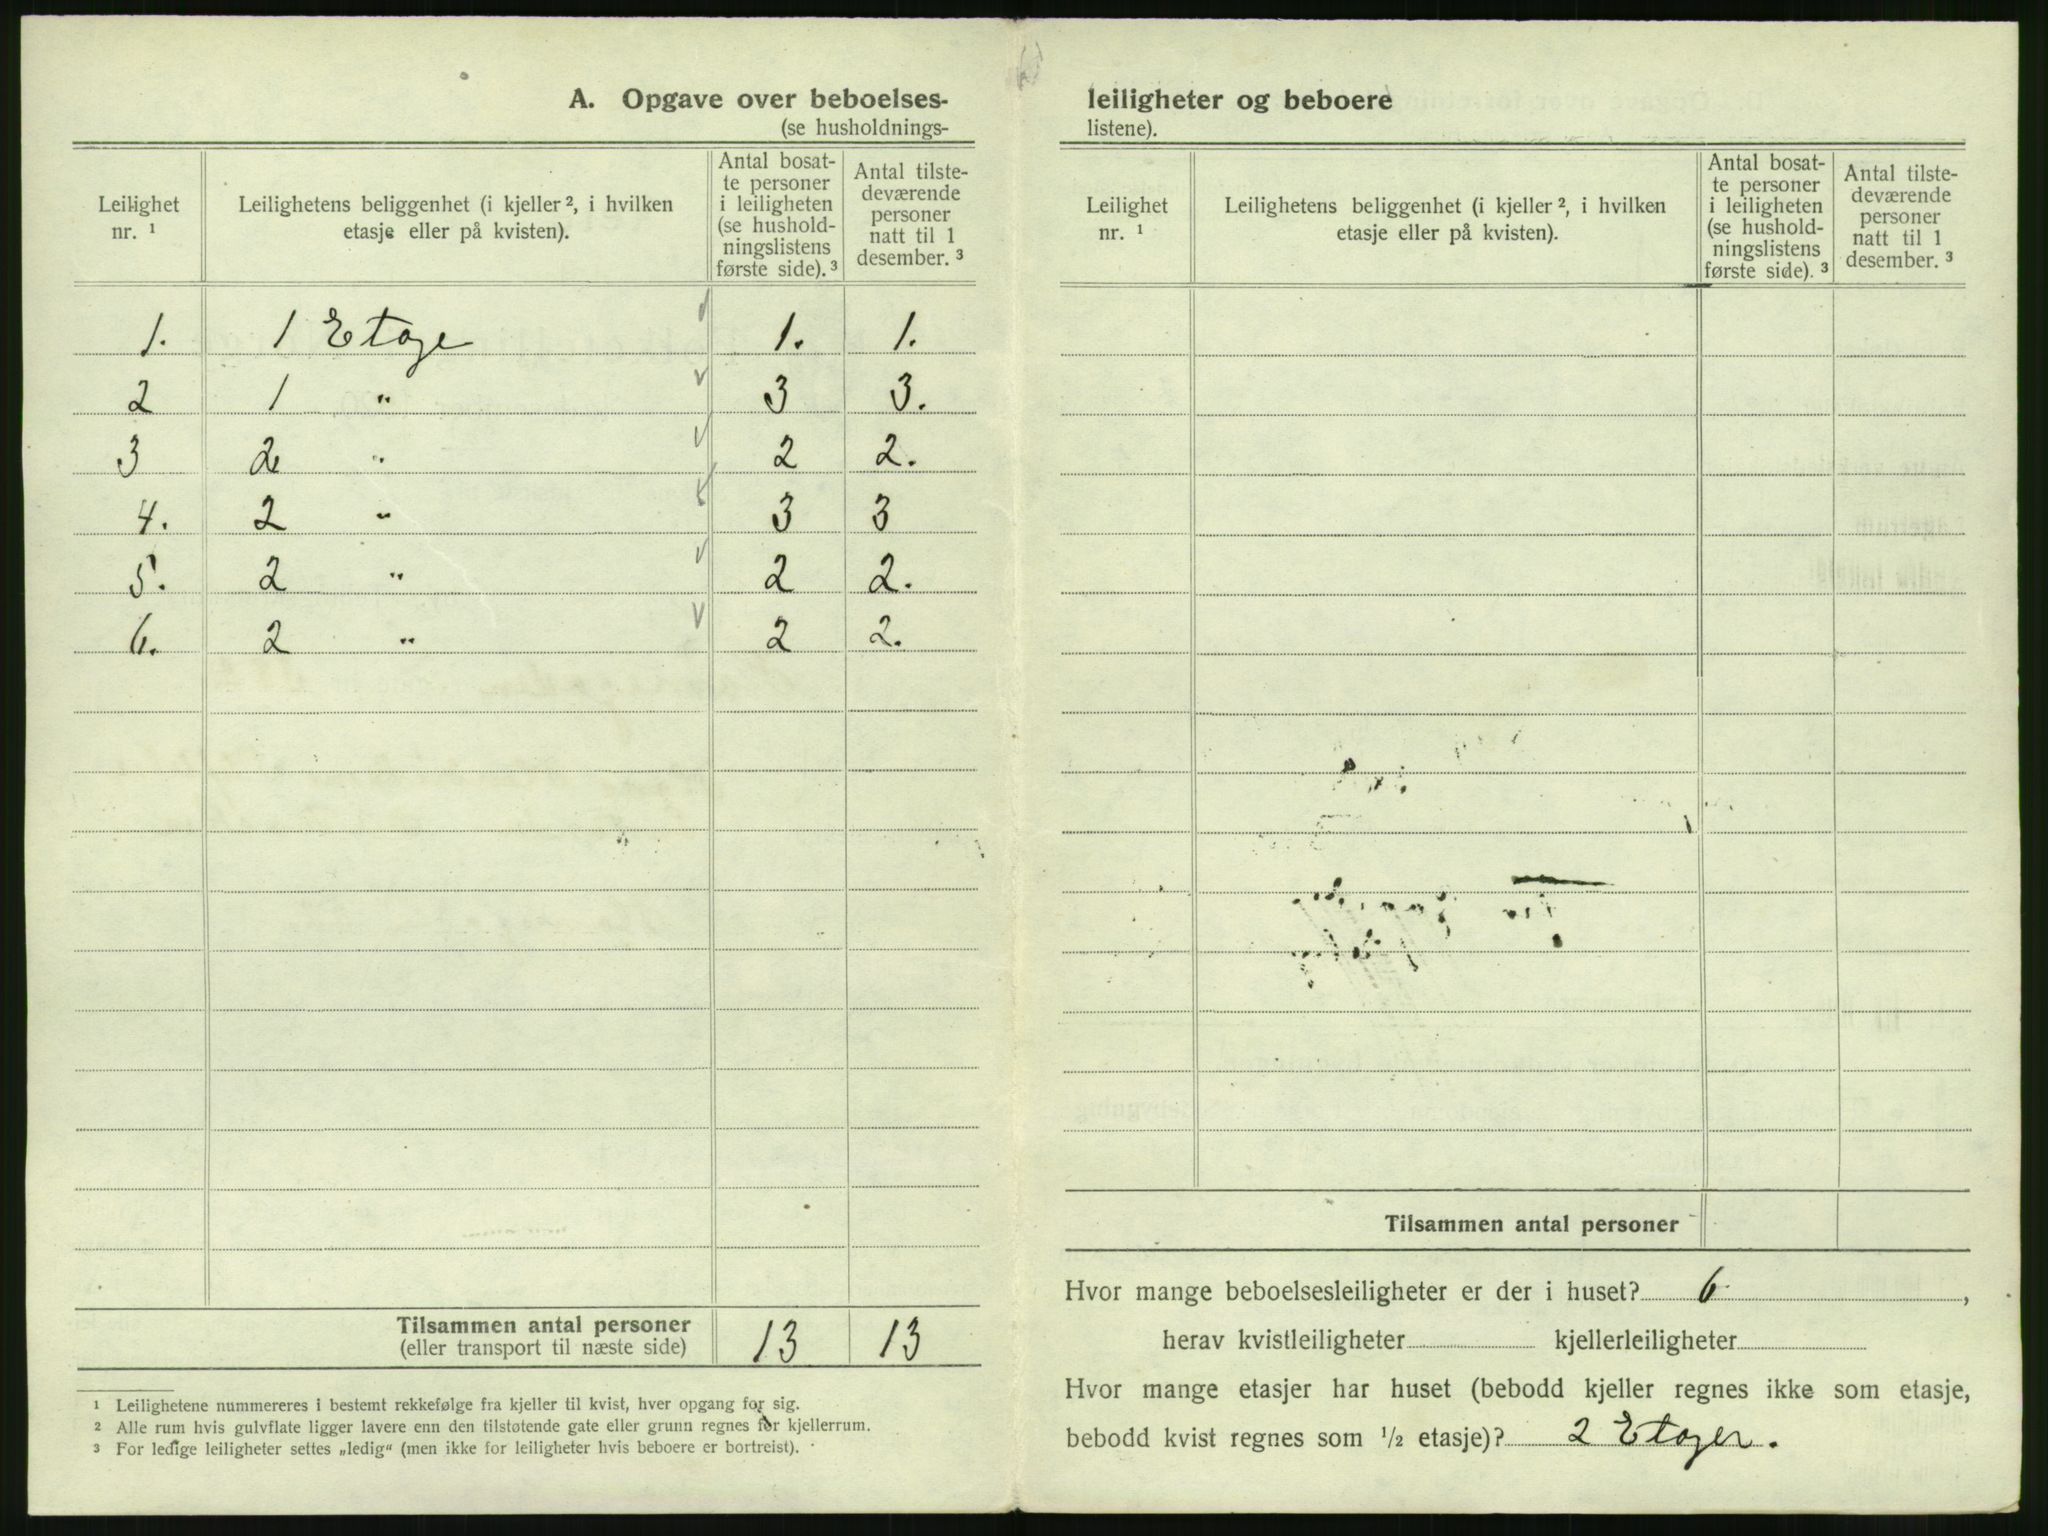 A. Opgave over beboelses-
(se husholdnings-
Leilighet nr. ¹ | Leilighetens beliggenhet (i kjeller ², i hvilken etasje eller på kvisten). | Antal bosatte personer i leiligheten (se husholdningslistens første side). ³ | Antal tilstedeværende personer natt til 1 desember. ³
1. 1 Etage 1. 1.
2 1 " 3 3.
3 2 " 2 2.
4. 2 " 3 3
5. 2 " 2 2.
6. 2 " 2 2.
Tilsammen antal personer 13 13
(eller transport til næste side)
¹ Leilighetene nummereres i bestemt rekkefølge fra kjeller til kvist, hver opgang for sig.
² Alle rum hvis gulvflate ligger lavere enn den tilstøtende gate eller grunn regnes for kjellerrum.
³ For ledige leiligheter settes „ledig“ (men ikke for leiligheter hvis beboere er bortreist).
leiligheter og beboere
listene).
Leilighet nr. ¹ | Leilighetens beliggenhet (i kjeller ², i hvilken etasje eller på kvisten). | Antal bosatte personer i leiligheten (se husholdningslistens første side). ³ | Antal tilstedeværende personer natt til 1 desember. ³
Tilsammen antal personer
Hvor mange beboelsesleiligheter er der i huset? 6,
herav kvistleiligheter kjellerleiligheter
Hvor mange etasjer har huset (bebodd kjeller regnes ikke som etasje,
bebodd kvist regnes som 1/2 etasje)? 2 Etager.